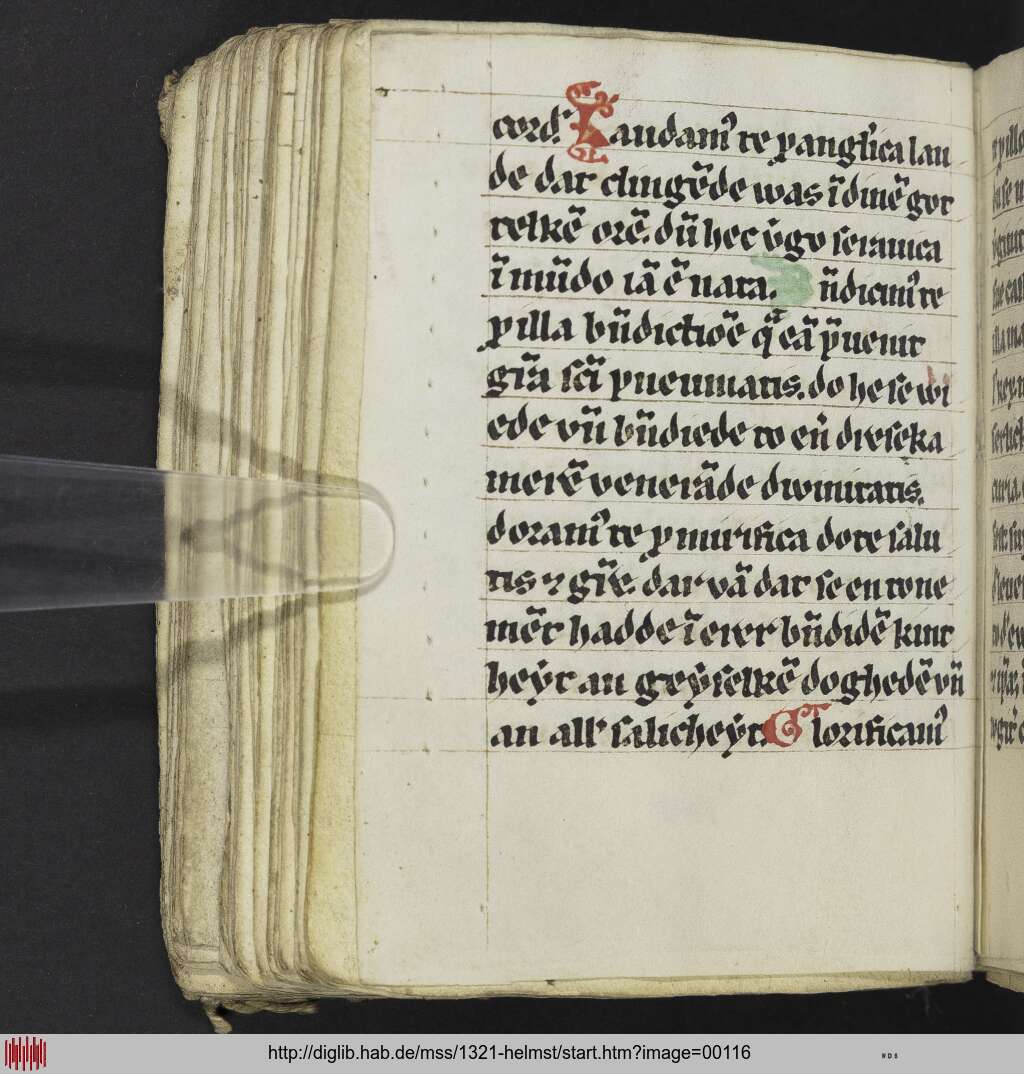 cordꝰ Laudamꝰ te ꝑ anglica lau
de dat clingēde was ī dinē got
telkē orē. dū hec ṽgo seraiuca
ī mūdo iā ē nata. ūdicimꝰ te
ꝑ illa būdictiōē q̄ eā p̄uenit
gr̄a sc̄i pneumatis. do he se wi
ede vn̄ būdiede to en̄ dieseka
merē venerāde diuinitatis.
doramꝰ te ꝑ mirifica dote salu
tis ⁊ gr̄e. dar vā dat se en tone
mēt hadde ī erer būdidē kint
heẏt an geẏstelkē doghedē vn̄
an allꝰ salicheẏt. Glorificamꝰ
http://diglib.hab.de/mss/1321-helmst/start.htm?image=00116